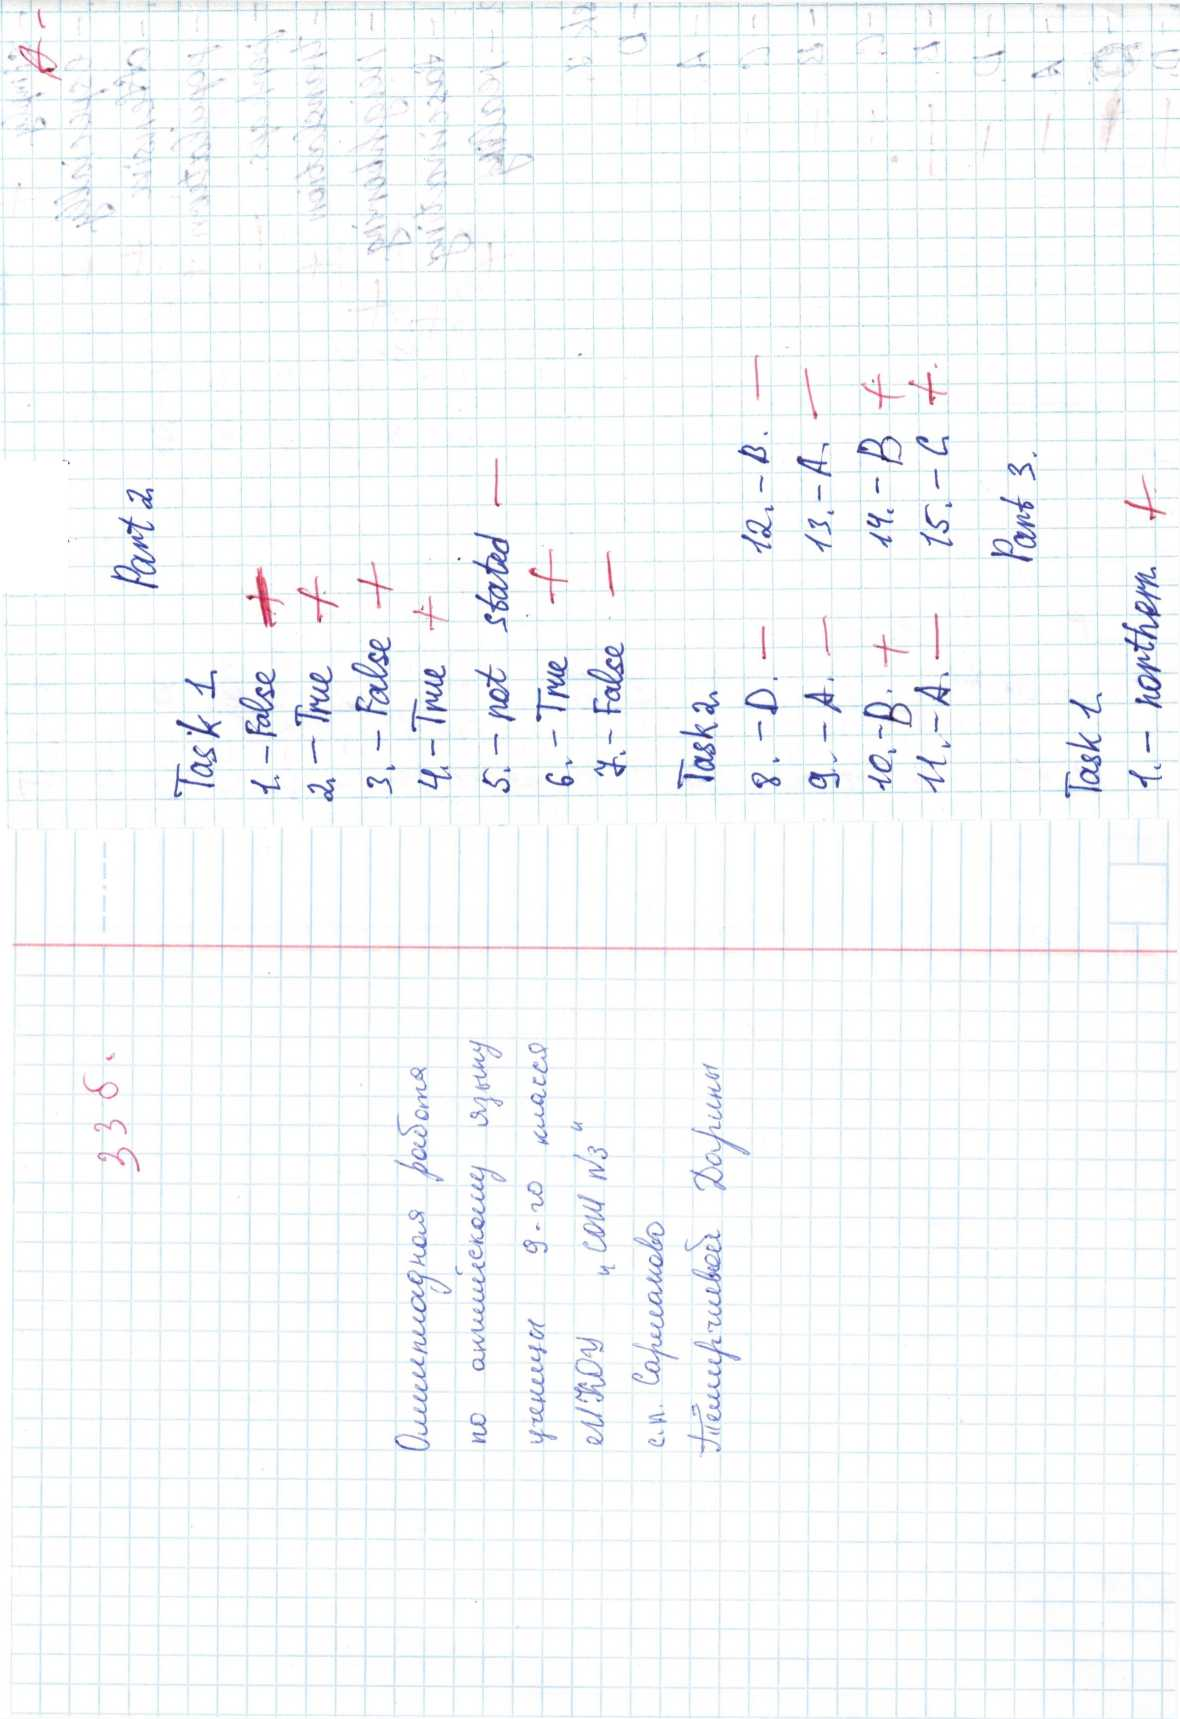 33 б.
Олимпиадная работа
по английскому языку
ученицы 9-го класса
МКОУ „СОШ №3"
с.п. Сармаково
Дарины
Part 2
Task 1
1. - False +
2. - True +
3. - False +
4. - True +
5. - not stated -
6. - True +
7. - False -
Task 2
8. - D. - 12. - B. -
9. - A. - 13. - A. -
10. - B. + 14. - B +
11. - A. - 15. - C. +
Part 3.
Task 1
1. - northern +